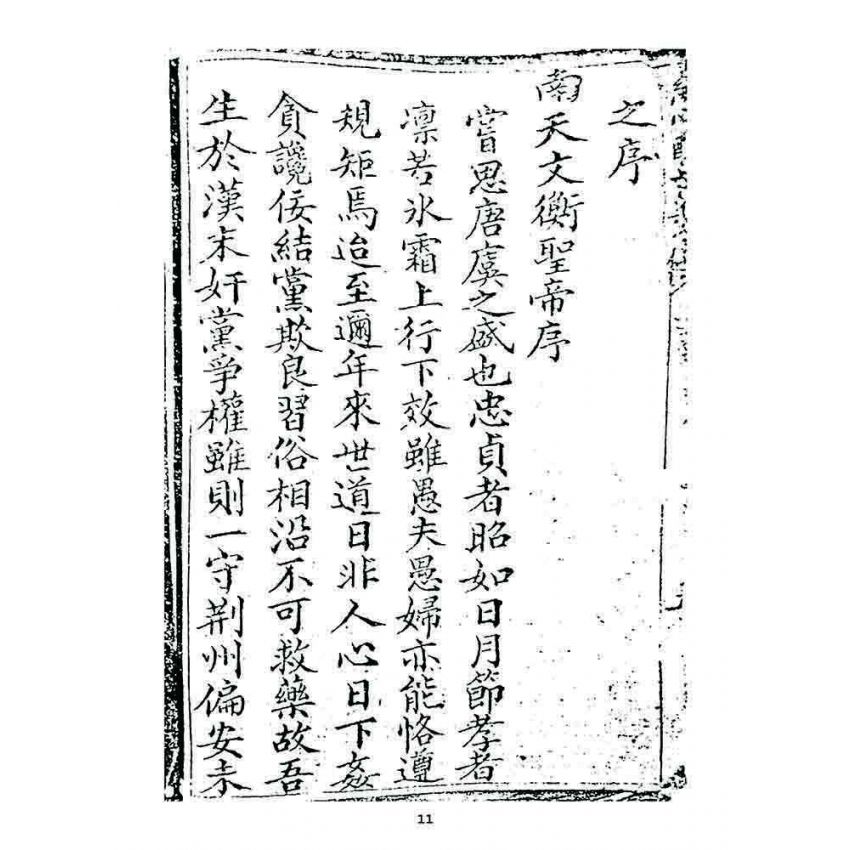 之序
南天文衡聖帝序
嘗思唐虞之盛也忠貞者昭如日月節孝者
凛若氷霜上行下效雖愚夫愚婦亦能恪遵
規矩焉迨至邇年來世道日非人心日下姦
貪讒佞結黨欺良習俗相沿不可救藥故吾
生於漢末奸黨爭權雖則一守荆州偏安未
11